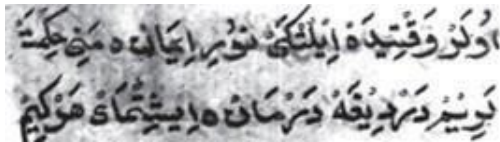 اُولَرْ وَقْتِيدَهْ اِيلْتْكَىْ نُورِ اِيمَانْ ٥ مَنِى حِكْمَتْ
لَرِيمْ دَرْدِيغَهْ دَرْمَانْ ٥ اِيشِيتْمَاىْ هَرْكِيمْ